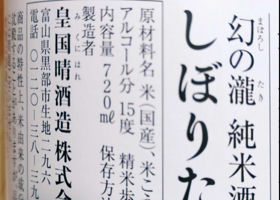 まぼろし たき
幻の瀧 純米酒
しぼりた
原材料名 米(国産)、米こう
アルコール分 15度 精米歩
内容量 720㎖ 保存方法
製造者
みくにはれ
皇国晴酒造株式会
富山県黒部市生地二九六
電話 〇一二〇-三八-三九
商品の特性上、米由来の成分